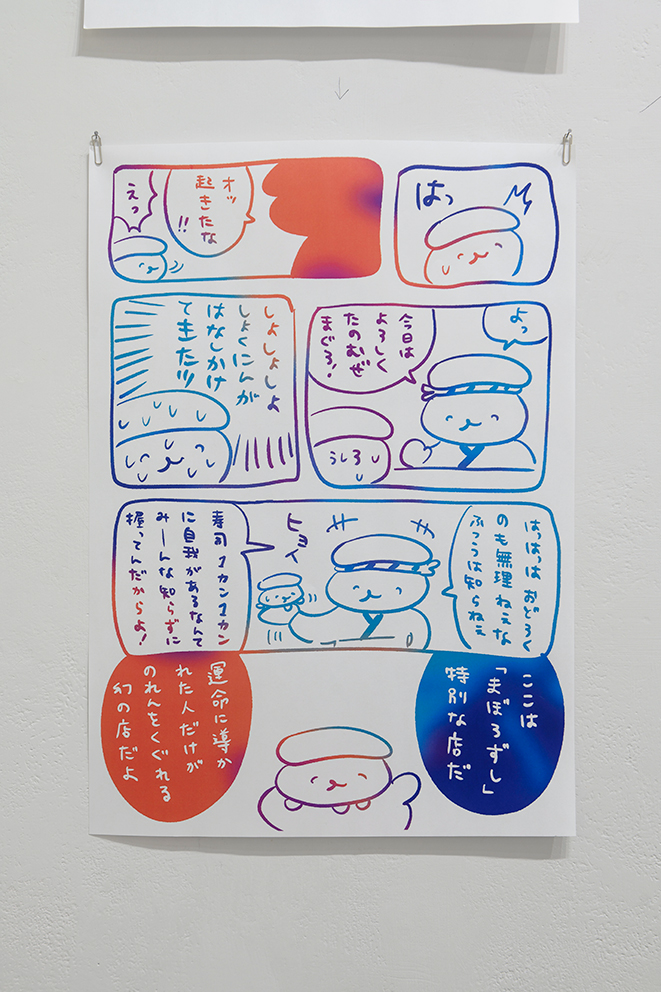 はっ
オッ
起きたな
!!
えっ
よっ
今日は
よろしく
たのむぜ
まぐろ!
うしろ
しょしょしょ
しょくにんが
はなしかけ
てきたッ
はっはっは おどろく
のも無理ねえな
ふつうは知らねえ
ヒョイ
寿司1カン1カン
に自我があるなんて
みーんな知らずに
握ってんだからよ!
ここは
「まぼろずし」
特別な店だ
運命に導か
れた人だけが
のれんをくぐれる
幻の店だよ